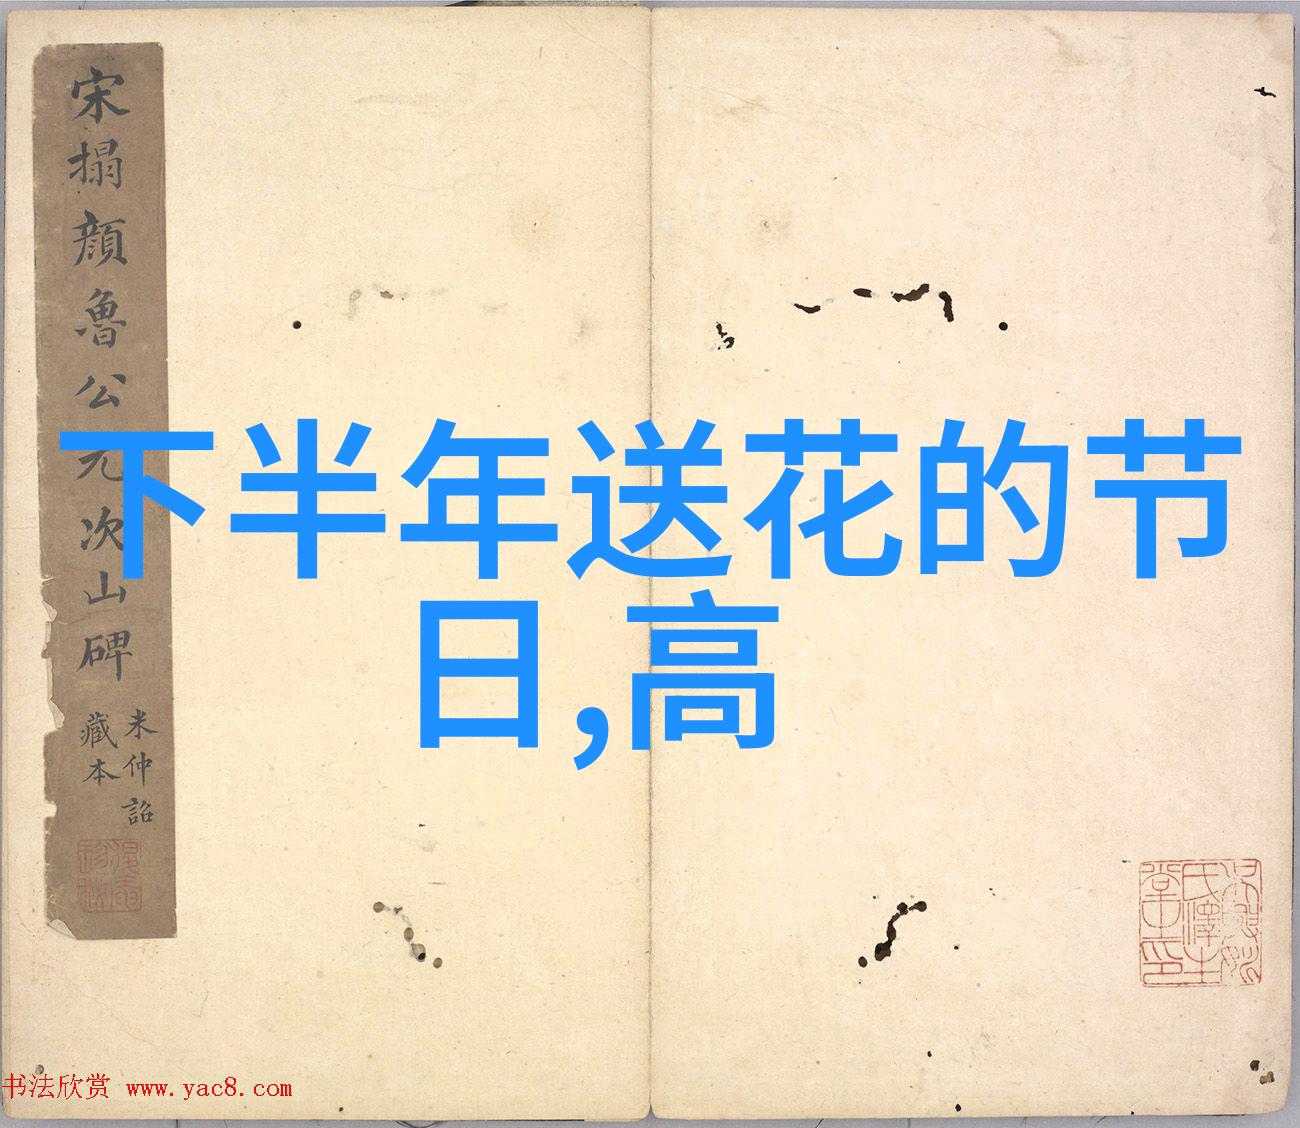 宋搨顏魯公元次山碑
米仲詔
藏本
下半年送花的节
日,高
书法欣赏 www.yac8.com